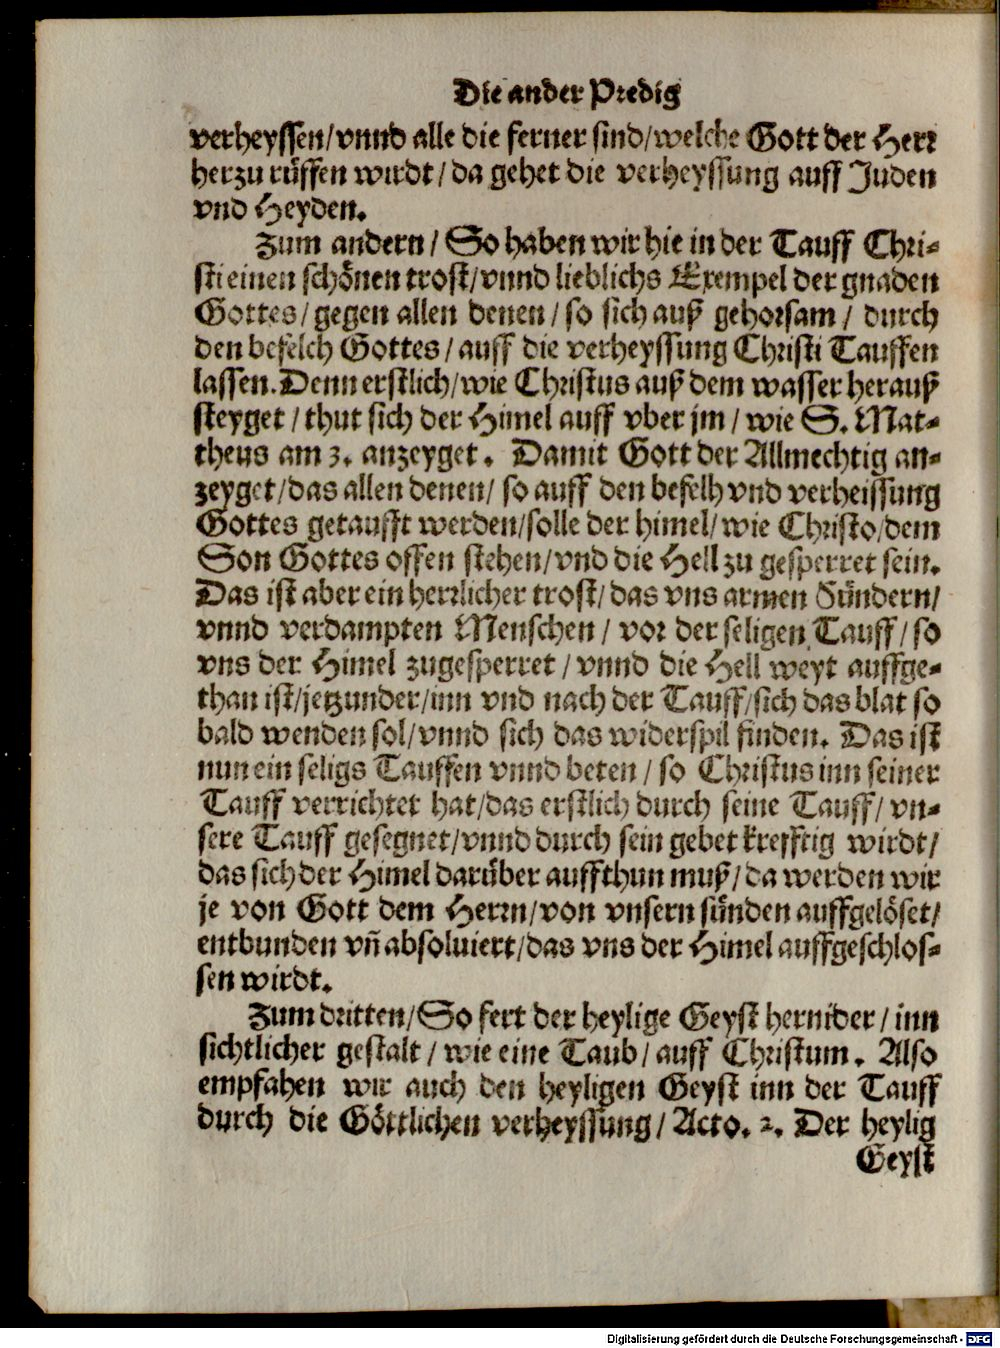 Die ander Predig
verheyssen/vnnd alle die ferner sind/welche Gott der Herr
herzu rüffen wirdt/da gehet die verheyssung auff Juden
vnd Heyden.
Zum andern/So haben wir hie in der Tauff Chri-
sti einen schönen trost/vnnd lieblichs Exempel der gnaden
Gottes/gegen allen denen/so sich auß gehorsam/durch
den befelch Gottes/auff die verheyssung Christi Tauffen
lassen. Denn erstlich/wie Christus auß dem wasser herauß
steyget/thut sich der Himel auff vber jm/wie S. Mat-
theus am 3. anzeyget. Damit Gott der Allmechtig an-
zeyget/das allen denen/so auff den befelh vnd verheissung
Gottes getaufft werden/solle der himel/wie Christo/dem
Son Gottes offen stehen/vnd die Hell zu gesperret sein.
Das ist aber ein herrlicher trost/das vns armen Sündern/
vnnd verdampten Menschen/vor der seligen Tauff/so
vns der Himel zugesperret/vnnd die Hell weyt auffge-
than ist/jetzunder/inn vnd nach der Tauff/sich das blat so
bald wenden sol/vnnd sich das widerspil finden. Das ist
nun ein seligs Tauffen vnnd beten/so Christus inn seiner
Tauff verrichtet hat/das erstlich durch seine Tauff/vn-
sere Tauff gesegnet/vnnd durch sein gebet krefftig wirdt/
das sich der Himel darüber auffthun muß/da werden wir
je von Gott dem Herrn/von vnsern sünden auffgelöset/
entbunden vñ absoluiert/das vns der Himel auffgeschlos-
sen wirdt.
Zum dritten/So fert der heylige Geyst hernider/inn
sichtlicher gestalt/wie eine Taub/auff Christum. Also
empfahen wir auch den heyligen Geyst inn der Tauff
durch die Göttlichen verheyssung/Acto. 2. Der heylig
Geyst
Digitalisierung gefördert durch die Deutsche Forschungsgemeinschaft - DFG